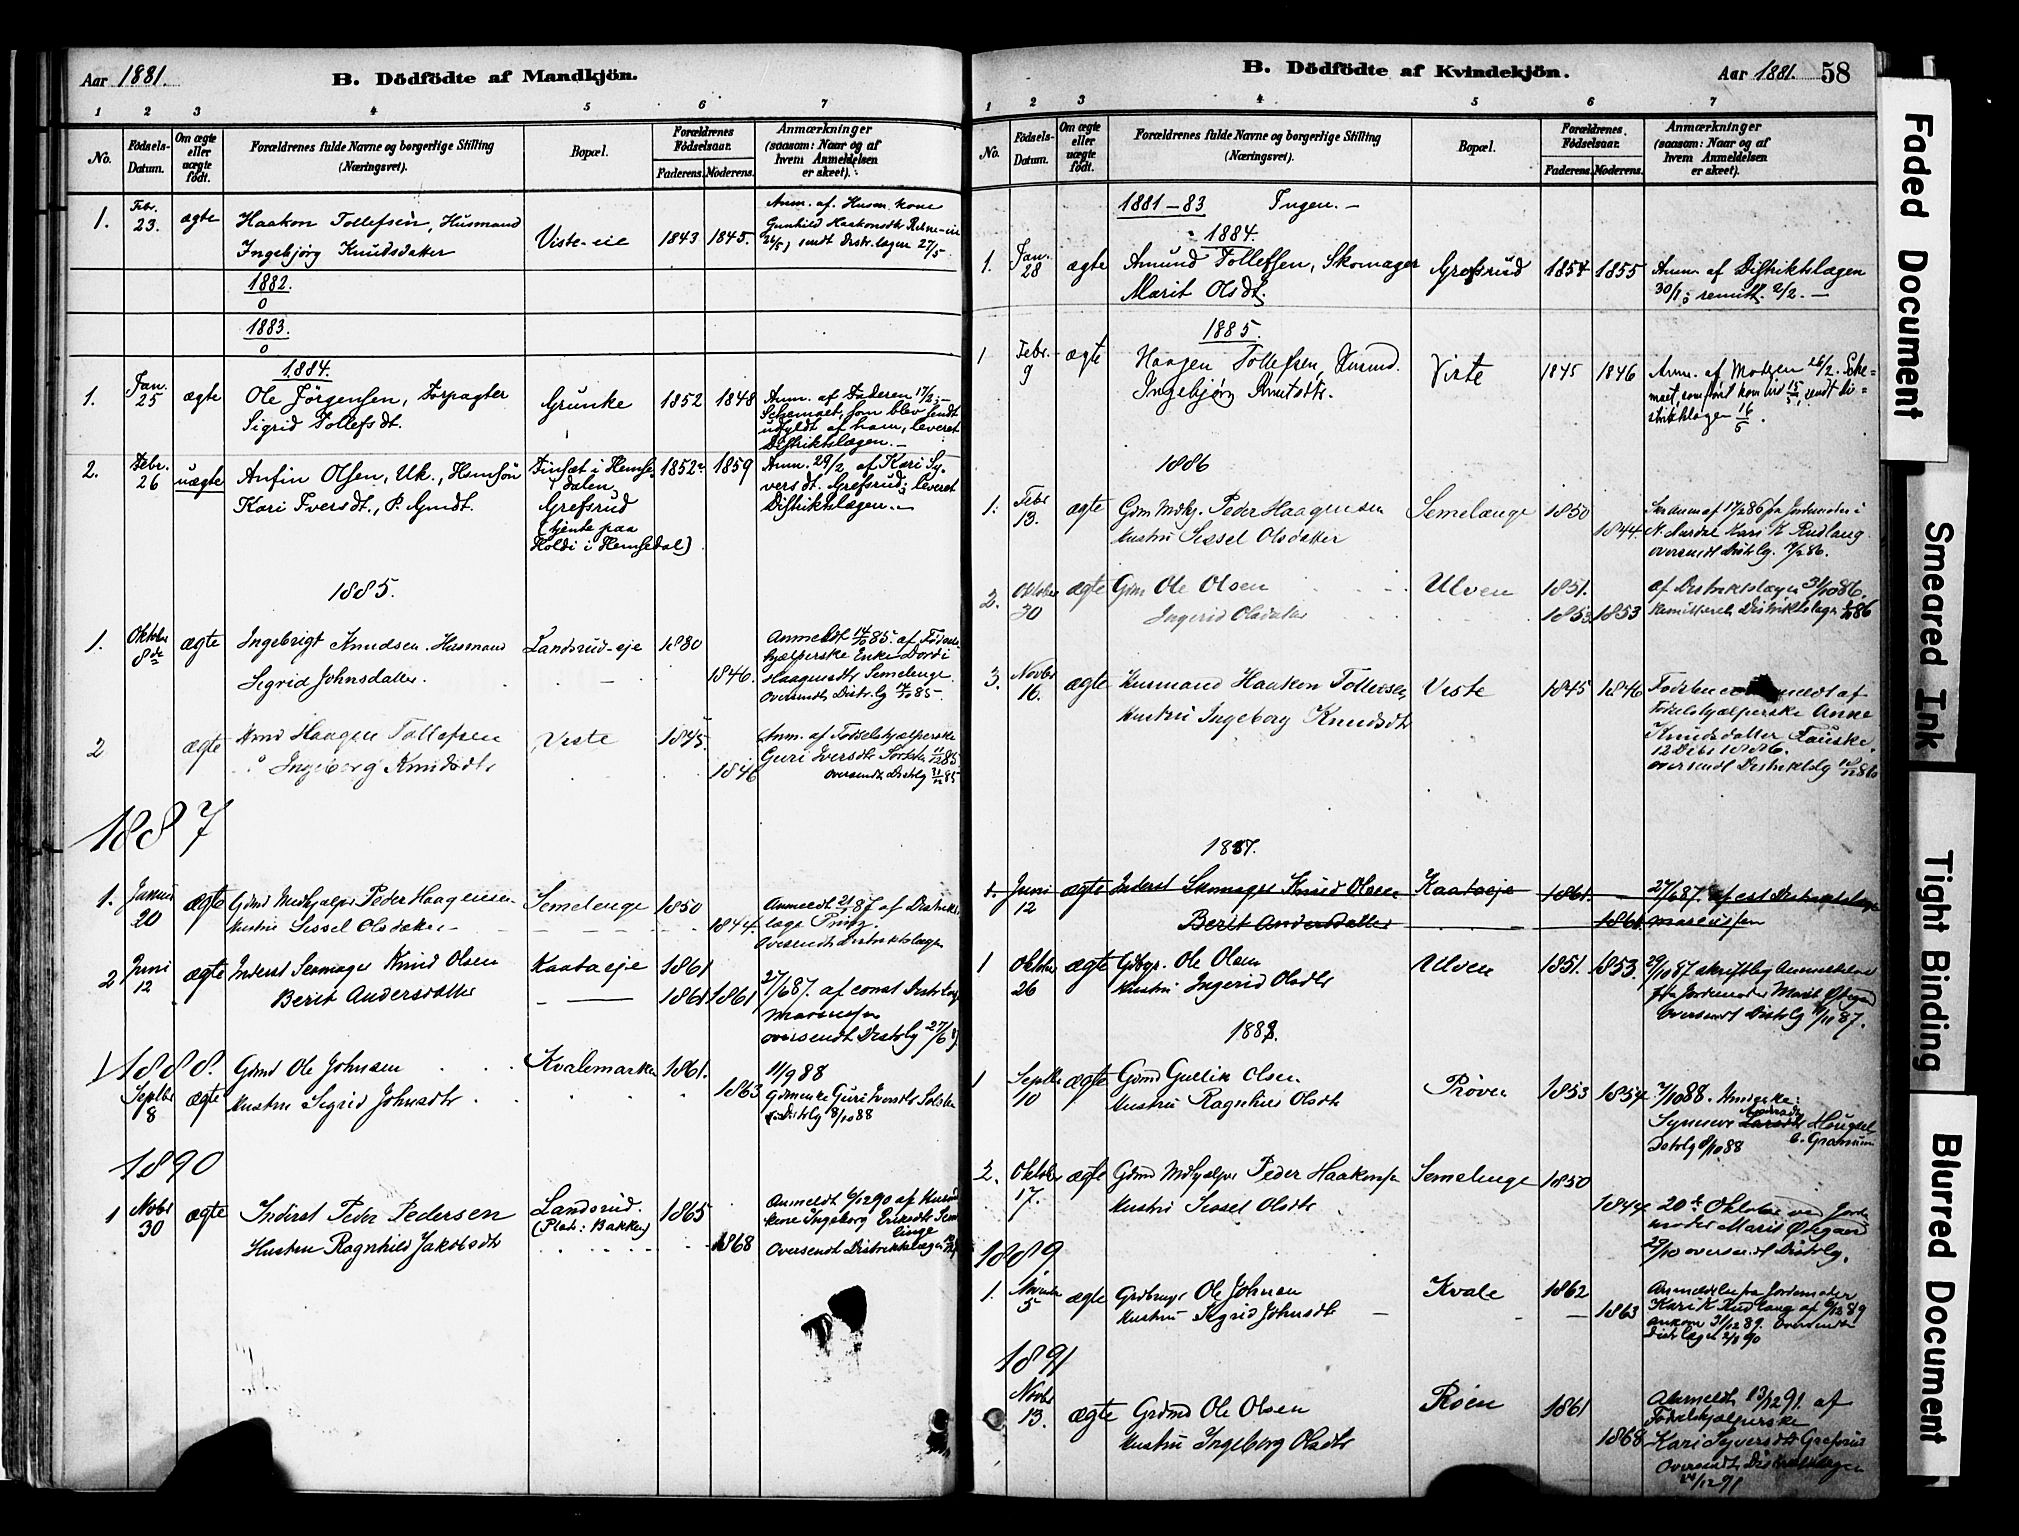 Aar 1881.
B. Dödfödte af Mandkjön.
1 2 3 4 5 6 7
No.
Födsels-Datum.
Om ægte eller uægte födt.
Forældrenes fulde Navne og borgerlige Stilling
(Næringsvei).
Bopæl.
Forældrenes Födselsaar.
Faderens. Moderens.
Anmærkninger
(saasom: Naar og af
hvem Anmeldelsen
er skeet).
1. Febr. 23. ægte Haakon Tollefsen, Husmand
Ingebjørg Knudsdatter
Viste-eie 1843 1845.
Anm. af Husm. kone
Gunhild Haakonsdtr
sendt Distr.lægen 27/5
1882.
0
1883.
0
1884.
1. Jan. 25 ægte Ole Jörgensen, Forpagter
Sigrid Tollefsdt.
Grünke 1852 1848
Anm. af Faderen 17/2;
Schemaet, som blev sendt
udfyldt af ham, leveret
Distriktslægen.
2. Febr. 26 uægte Anfin Olsen, Uk., Hemsön
Kari Iversdt., P. Gmdt.
Finsæt i Hemse-
dalen
Grefsrud
(tjente paa
Holdi i Hemsedal)
1852 1859
Anm. 29/2 af Kari Sy-
versdt. Grefsrud; leveret
Distriktslægen.
1885.
1. Oktober 8de ægte Ingebrigt Knudsen. Husmand
Sigrid Johnsdatter.
Landsrud-eje 1880
1846.
Anmeldt 14/10 85. af Födsels-
hjælperske Enke Dordi
Haagensdtr Semelenge.
Oversendt Distr.lg 14/10 85.
2 ægte Hmd Haagen Tollefsen
Ingeborg Knudsdtr
Viste 1845.
1846
Anm. af Fødselshjælperske
Guri Iversdtr
oversendt Distrlg
1887
1. Januar 20 ægte Gdmd Medhjælper Peder Haagensen
Hustru Sissel Olsdatter
Semelenge 1850
1844.
Anmeldt 21/1 87 af Distrikts-
læge Printz.
Oversendt Distriktslægen
2 Juni 12 ægte Inderst Skomager Knud Olsen
Berit Andersdatter
Kaataeje 1861
1861 1861
27/6 87. af const Distrlæge
oversendt Distrlg 27/6 87.
1888.
1 Septbr 8 ægte Gdmd Ole Johnsen
Hustru Sigrid Johnsdtr
Kvalemarken 1861.
1863
11/9 88
Gdmenke Guri Iversdtr
Distrlg 8/10 88
1890
1 Novbr 30 ægte Inderst Peder Pedersen
Hustru Ragnhild Jakobsdtr
Landsrud.
(Plads: Bakken)
1865
1868
Anmeldt 6/12 90 af Husmd
kone Ingeborg Eriksdtr Seme-
linge
Oversendt Distriktslægen
B. Dödfödte af Kvindekjön.
Aar 1881. 58
1 2 3 4 5 6 7
No.
Födsels-Datum.
Om ægte eller uægte födt.
Forældrenes fulde Navne og borgerlige Stilling
(Næringsvei).
Bopæl.
Forældrenes Födselsaar.
Faderens. Moderens.
Anmærkninger
(saasom: Naar og af
hvem Anmeldelsen
er skeet).
1881-83 Ingen.
1884.
1. Jan. 28 ægte Amund Tollefsen, Skomager
Marit Olsdt.
Grefsrud 1854 1855
Anm. af Distriktslægen
30/1; remitt. 2/2.
1885.
1 Febr. 9 ægte Haagen Tollefsen, Husmd.
Ingebjørg Knutsdtr.
Virte 1845 1846
Anm. af Moderen 26/2. Sche-
maet, som først kom ind 15/5, sendt Di-
striktslægen 16/5.
1886
1. Febr 13. ægte Gdm Mdhj. Peder Haagensen
Hustru Sissel Olsdatter
Semelænge 1850
1844
N. Aurdal Kari K Rudlang
oversendt Distrlg.
2. Oktober 30 ægte Gdm Ole Olsen
Ingerid Olsdatter
Ulven 1851.
1853 1853
af Distriktslægen 31/10 86.
Remitteret Distriktslægen
3. Novbr 16. ægte Husmand Haakon Tollevsen
Hustru Ingeborg Knudsdtr
Viste 1845 1846
Fødselshjælperske Anne
Knudsdatter Fauske.
12 Dcbr 1886.
oversendt Distriktslg
1887.
1. Juni 12 ægte Inderst Skomager Knud Olsen
Berit Andersdatter
Kaataeje 1861.
1861
27/6 87. af cst Distriktslæge
1 Oktober 26 ægte Gdbgr. Ole Olsen
Hustru Ingerid Olsdtr
Ulven 1851. 1853.
29/10 87 skriftlig Anmeldelse
fra Jordemoder Marit Ødegaard
Oversendt Distrlg 1/11 87.
1888.
1 Septbr 10 ægte Gdmd Gullik Olsen
Hustru Ragnhild Olsdtr
Prøven 1853 1854
7/10 88. Husm.ske:
Synneve Haugset
Distrlg 8/10 88
2. Oktober 17. ægte Gdmd Medhjælper Peder Haakonsen
Hustru Sissel Olsdtr
Semelenge 1850
1844
20de Oktober ved Jorde-
moder Marit Ødegaard
29/10 oversendt Distrlg.
1889
1. November 5 ægte Grdbruger Ole Johnsen
Hustru Sigrid Johnsdtr
Kvale 1862
1863
Anmeldelse fra Jordemoder
Kari K Rudlang af 6/12 89
ankom 31/12 89. Oversendt
Distrlægen 2/1 90
1891
Novbr 13. ægte Grdmd Ole Olsen
Hustru Ingeborg Olsdtr
Røen 1861
1868
Anmeldt 13/12 91. af
Fødselshjælperske
Kari Syversdtr Grefsrud
Oversendt Distriktslægen
24/12 91
Faded Document
Smeared Ink
Tight Binding
Blurred Document